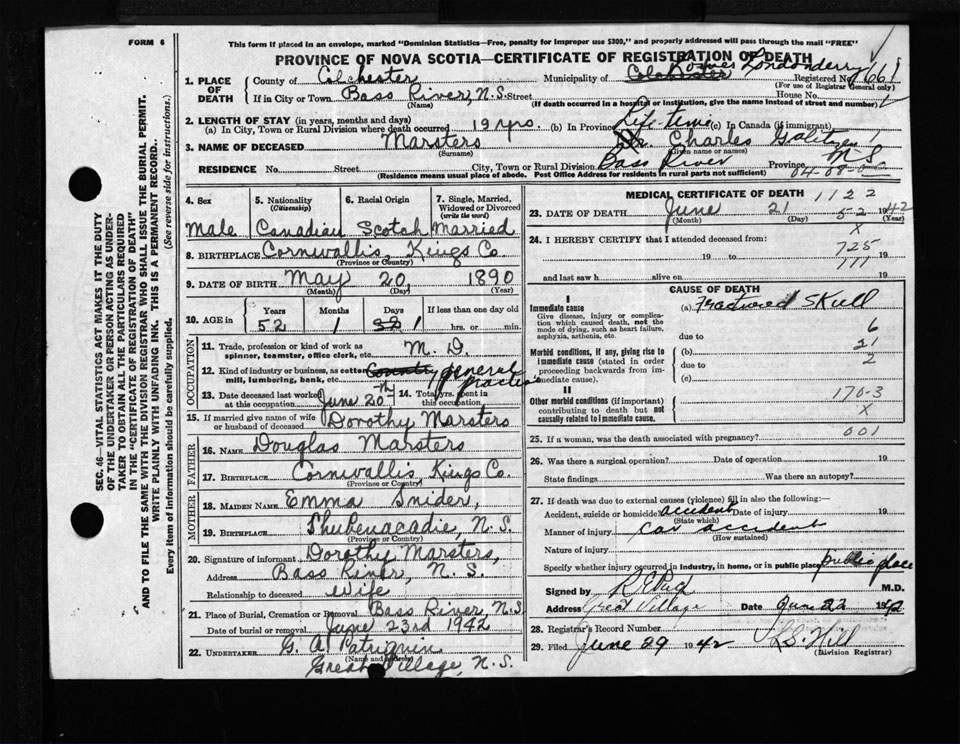 FORM 6
This form if placed in an envelope, marked "Dominion Statistics—Free, penalty for improper use $300," and properly addressed will pass through the mail "FREE"
PROVINCE OF NOVA SCOTIA—CERTIFICATE OF REGISTRATION OF DEATH
1. PLACE OF DEATH
County of Colchester Municipality of Colchester Londonderry Registered No.
(For use of Registrar General only)
If in City or Town Bass River, N.S. Street House No.
(Name) (If death occurred in a hospital or institution, give the name instead of street and number)
2. LENGTH OF STAY (in years, months and days)
(a) In City, Town or Rural Division where death occurred 19 yrs. (b) In Province Life-time (c) In Canada (if immigrant)
3. NAME OF DECEASED Marsters Dr. Charles
(Surname) (Given name or names)
RESIDENCE No. Street City, Town or Rural Division Bass River Province N.S.
(Residence means usual place of abode. Post Office Address for residents in rural parts not sufficient)
4. Sex
5. Nationality (Citizenship)
6. Racial Origin
7. Single, Married, Widowed or Divorced (write the word)
Male Canadian Scotch Married
8. BIRTHPLACE Cornwallis, Kings Co.
(Province or Country)
9. DATE OF BIRTH May 20, 1890
(Month) (Day) (Year)
10. AGE in Years Months Days If less than one day old
52 1 1 hrs. or min.
OCCUPATION
11. Trade, profession or kind of work as spinner, teamster, office clerk, etc. M. D.
12. Kind of industry or business, as cotton mill, lumbering, bank, etc. County, general practice
13. Date deceased last worked at this occupation June 20th
14. Total yrs. spent in this occupation
15. If married give name of wife or husband of deceased Dorothy Marsters
FATHER
16. NAME Douglas Marsters
17. BIRTHPLACE Cornwallis, Kings Co.
(Province or Country)
MOTHER
18. MAIDEN NAME Emma Snider,
19. BIRTHPLACE Shubenacadie, N.S.
(Province or Country)
20. Signature of informant Dorothy Marsters,
Address Bass River, N. S.
Relationship to deceased Wife
21. Place of Burial, Cremation or Removal Bass River, N.S.
Date of burial or removal June 23rd 1942
22. UNDERTAKER G. A. Patriquin
(Name and address)
Great Village, N.S.
MEDICAL CERTIFICATE OF DEATH 1122
23. DATE OF DEATH June 21 5-2 1942
(Month) (Day) (Year)
X
24. I HEREBY CERTIFY that I attended deceased from:
19 to 725 19
and last saw h alive on 777 19
CAUSE OF DEATH
I
Immediate cause
Give disease, injury or complication which caused death, not the mode of dying, such as heart failure, asphyxia, asthenia, etc.
(a) Fractured Skull
due to 6
Morbid conditions, if any, giving rise to immediate cause (stated in order proceeding backwards from immediate cause).
(b) 21
due to 2
(c)
II
Other morbid conditions (if important) contributing to death but not causally related to immediate cause.
170-3
X
25. If a woman, was the death associated with pregnancy? 001
26. Was there a surgical operation? Date of operation 19
State findings Was there an autopsy?
27. If death was due to external causes (violence) fill in also the following:—
Accident, suicide or homicide accident Date of injury 19
(State which)
Manner of injury car accident
(How sustained)
Nature of injury
Specify whether injury occurred in industry, in home, or in public place public place
Signed by M.D.
Address Great Village Date June 22 1942
28. Registrar's Record Number
29. Filed June 29 1942 L.S. Hill
(Division Registrar)
SEC. 46—VITAL STATISTICS ACT MAKES IT THE DUTY OF THE UNDERTAKER OR PERSON ACTING AS UNDERTAKER TO OBTAIN ALL THE PARTICULARS REQUIRED IN THE "CERTIFICATE OF REGISTRATION OF DEATH"
AND TO FILE THE SAME WITH THE DIVISION REGISTRAR WHO SHALL ISSUE THE BURIAL PERMIT.
WRITE PLAINLY WITH UNFADING INK. THIS IS A PERMANENT RECORD.
Every item of information should be carefully supplied. (See reverse side for instructions.)